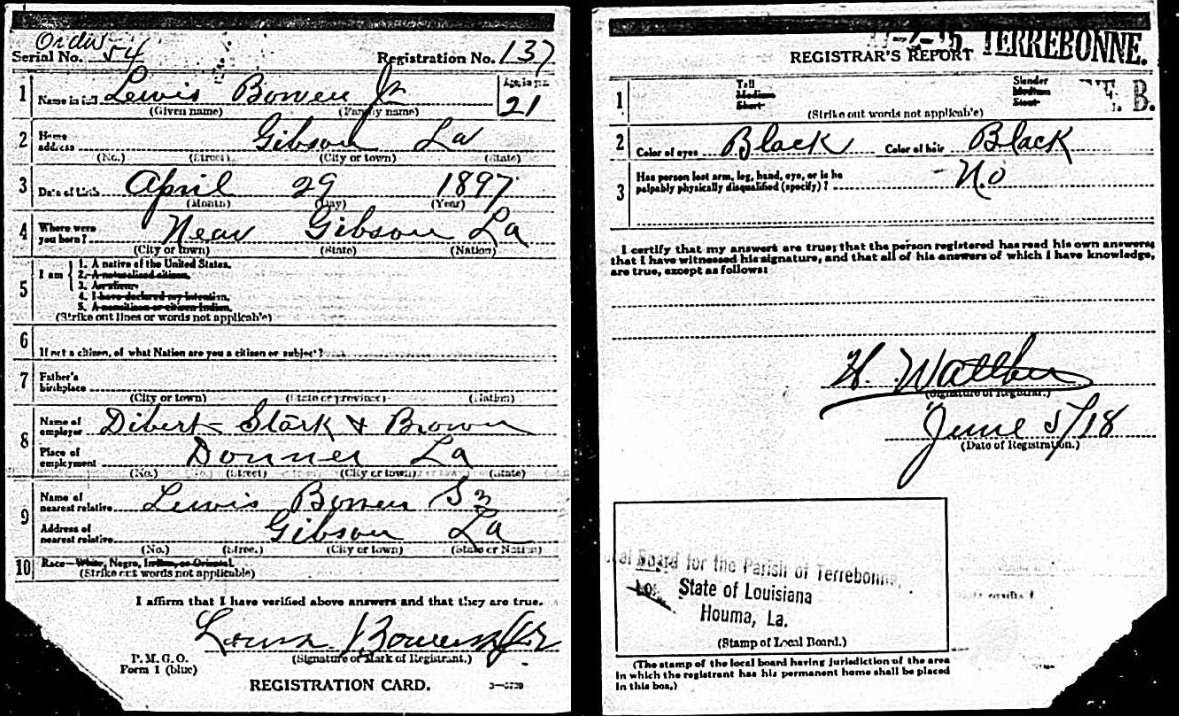 Order
Serial No. 54 Registration No. 137
1 Name in full Lewis Bowen Jr Age, in yrs. 21
(Given name) (Family name)
2 Home address Gibson La
(No.) (Street) (City or town) (State)
3 Date of birth April 29 1897
(Month) (Day) (Year)
4 Where were you born? Near Gibson La
(City or town) (State) (Nation)
5 I am
1. A native of the United States.
2. A naturalized citizen.
3. An alien.
4. I have declared my intention.
5. A noncitizen or citizen Indian.
(Strike out lines or words not applicable)
6 If not a citizen, of what Nation are you a citizen or subject?
7 Father's birthplace
(City or town) (State or province) (Nation)
8 Name of employer Dibert Stark & Brown
Place of employment Donner La
(No.) (Street) (City or town) (State)
9 Name of nearest relative Lewis Bowen Sr
Address of nearest relative Gibson La
(No.) (Street) (City or town) (State or Nation)
10 Race—White, Negro, Indian, or Oriental.
(Strike out words not applicable)
I affirm that I have verified above answers and that they are true.
Bowen Jr
(Signature or Mark of Registrant.)
P. M. G. O.
Form 1 (blue)
REGISTRATION CARD.
TERREBONNE.
REGISTRAR'S REPORT
1 Tall Slender
Medium Medium
Short Stout
(Strike out words not applicable)
2 Color of eyes Black Color of hair Black
3 Has person lost arm, leg, hand, eye, or is he
palpably physically disqualified (specify)? No
I certify that my answers are true; that the person registered has read his own answers;
that I have witnessed his signature, and that all of his answers of which I have knowledge,
are true, except as follows:
H. Walther
(Signature of Registrar.)
June 5/18
(Date of Registration.)
Board for the Parish of Terrebonne,
State of Louisiana
Houma, La.
(Stamp of Local Board.)
(The stamp of the local board having jurisdiction of the area
in which the registrant has his permanent home shall be placed
in this box.)